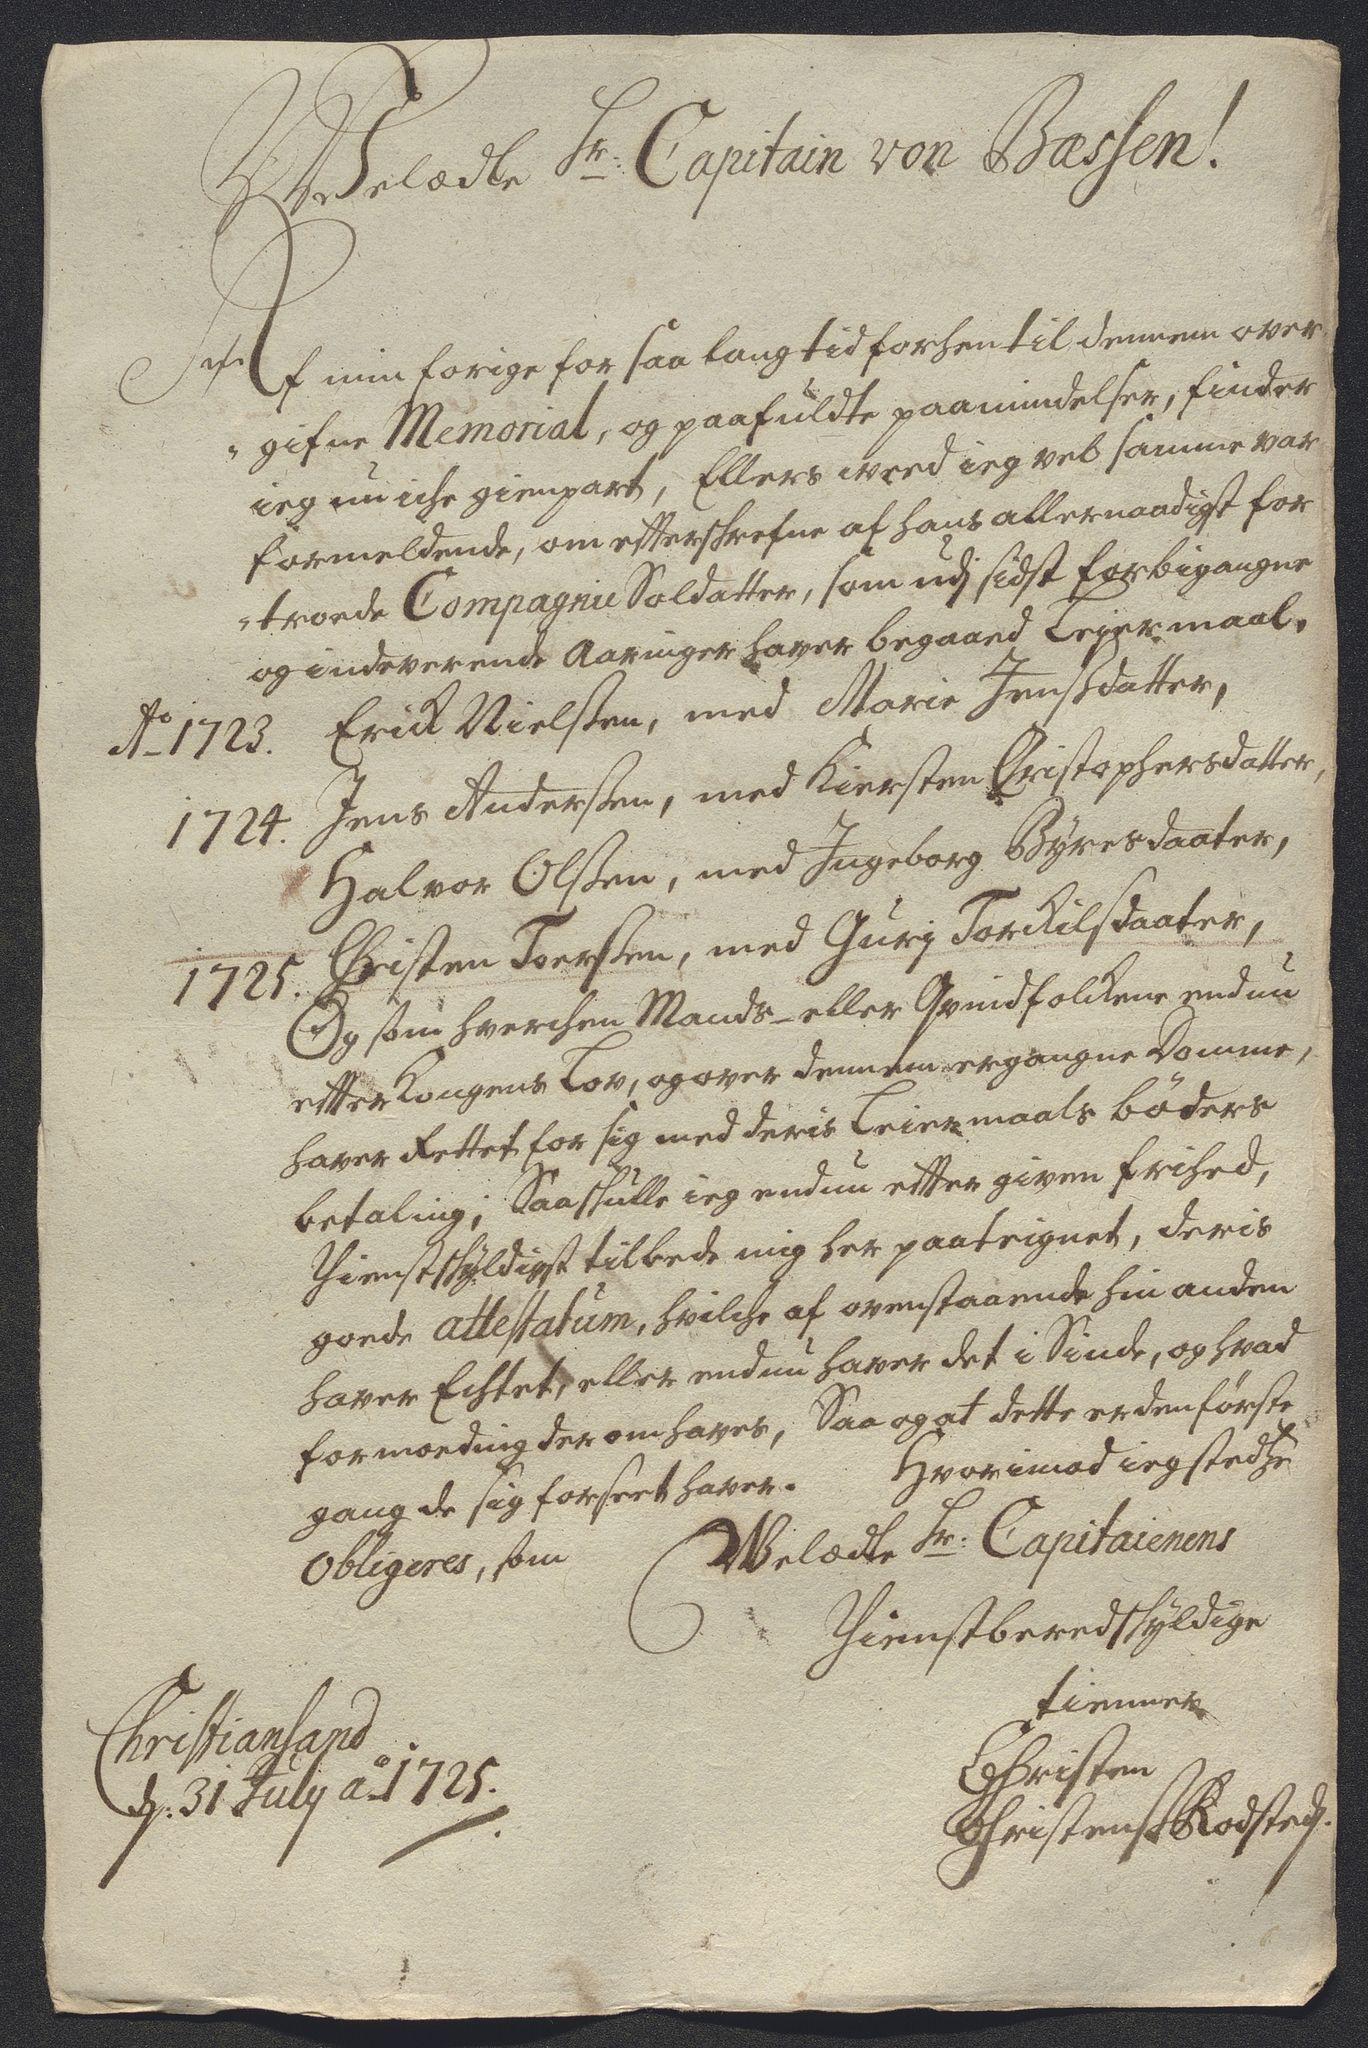 Welædle Hr: Capitain von Bæssen!
Af min forige for saa lang tid forhen til dennem over
"gifne Memorial, og paafuldte paamindelser, finder
ieg nu iche gienpart, Ellers weed ieg vel samme var
formeldende, om efterskrefne af hans allernaadigst for
"troede Compagnie Soldatter, som udj sidst forbigangne
og indeverende Aaringer haver begaaed Leiermaal.
Ao 1723. Erick Nielssen, med Marie Jenssdatter,
1724. Jens Anderssen, med Kiersten Christophersdatter,
Halvor Olssen, med Ingeborg Byresdaater,
1725. Christen Toerssen, med Gurj Torkilsdaater,
Og som hverchen Mands- eller Qvindfolckene endnu
efter Kongens Lov, og over dennem ergangne Domme,
haver Rettet for sig med deris Leiermaals böders
betaling; Saa skulle ieg endnu efter given frihed,
Tienstskyldigst tilbede mig her paateignet, deris
goede attestatum, hvilche af ovenstaaende hin anden
haver Echtet, eller endnu haver det i Sinde, og hvad
formoeding der om haves, Saa og at dette er den förste
gang de sig forseet haver. Hvorimod ieg stedtze
Obligeres, som Welædle Hr: Capitaienens
Tienstberedskyldige
tienner
Christen
Christenss Rodsted.
Christiansand
d: 31 July ao 1725.